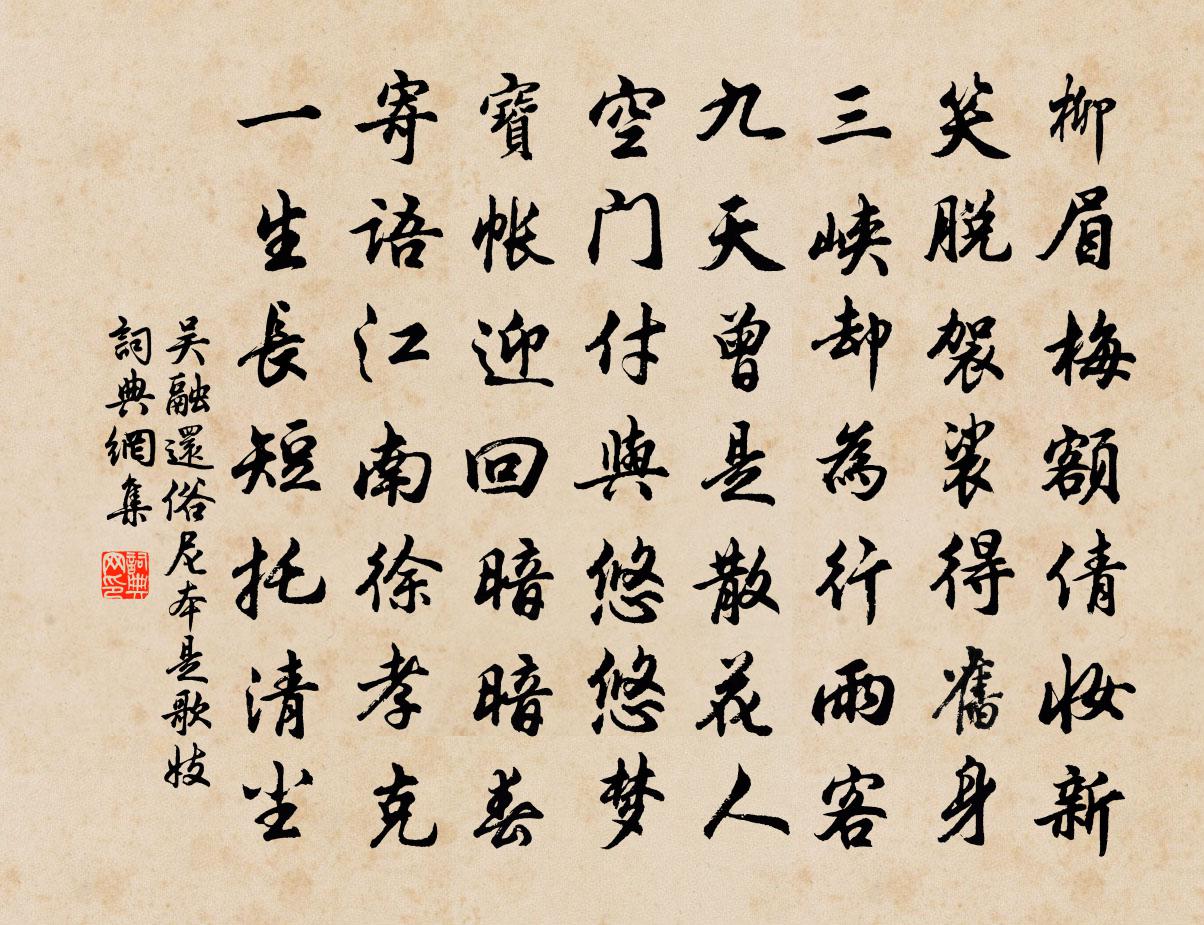 柳眉梅額倩妝新
笑脫袈裟得舊身
三峽却為行雨客
九天曾是散花人
空门付與悠悠梦
寶帳迎回暗暗春
寄語江南徐孝克
一生長短托清尘
吴融還俗尼本是歌妓
詞典網集
詞典网印